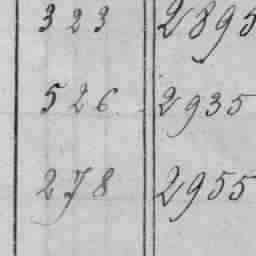 323 2895
526 2935
278 2955